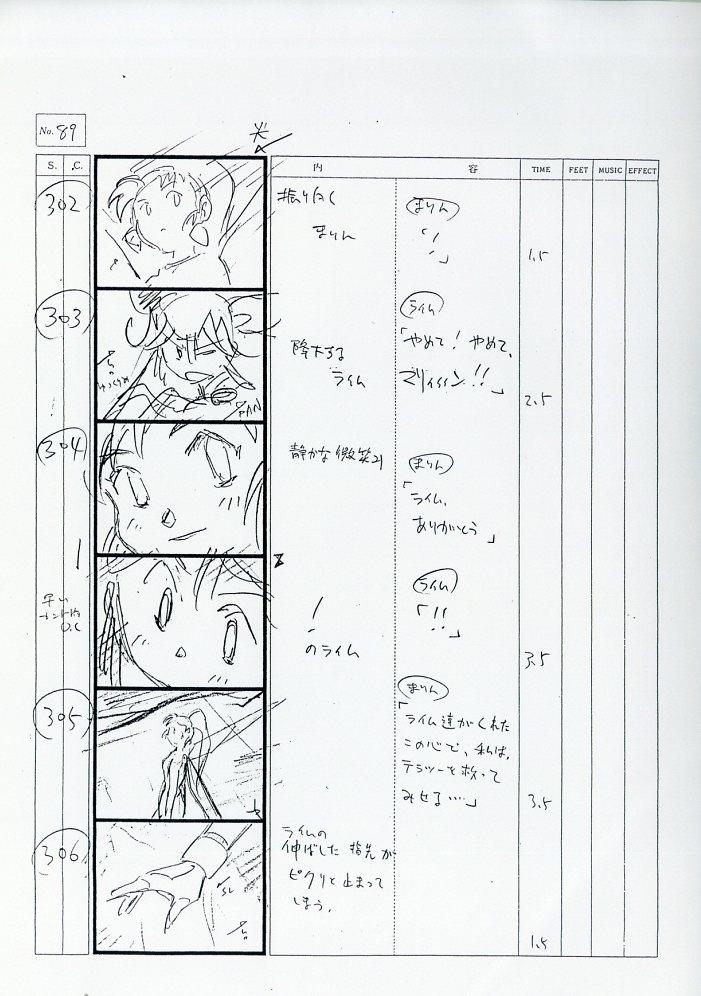 No. 89
光
S. C. 内 容 TIME FEET MUSIC EFFECT
302
振り向く
まりん
まりん
「!」
1.5
303
降下する
ライム
ライム
「やめて! やめて、
マリィィィン!!」
PAN
2.5
304
静かな微笑み
まりん
「ライム、
ありがとう」
早い
O.L
!
のライム
ライム
「!!」
3.5
305
まりん
「ライム達がくれた
この心で、私は、
テラツーを救って
みせる…」
3.5
306
ライムの
伸ばした指先が
ピクリと止まって
しまう。
SL
1.5